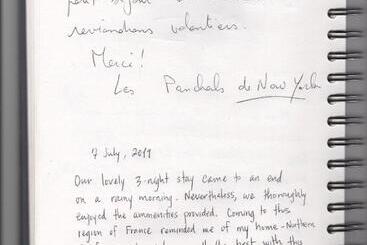 petit séjour
reviendrons volontiers.
Merci!
Les Panchals de New York
7 July, 2019
Our lovely 3-night stay came to an end
on a rainy morning. Nevertheless, we thoroughly
enjoyed the ammenities provided. Coming to this
region of France reminded me of my home - Northern
the best with this